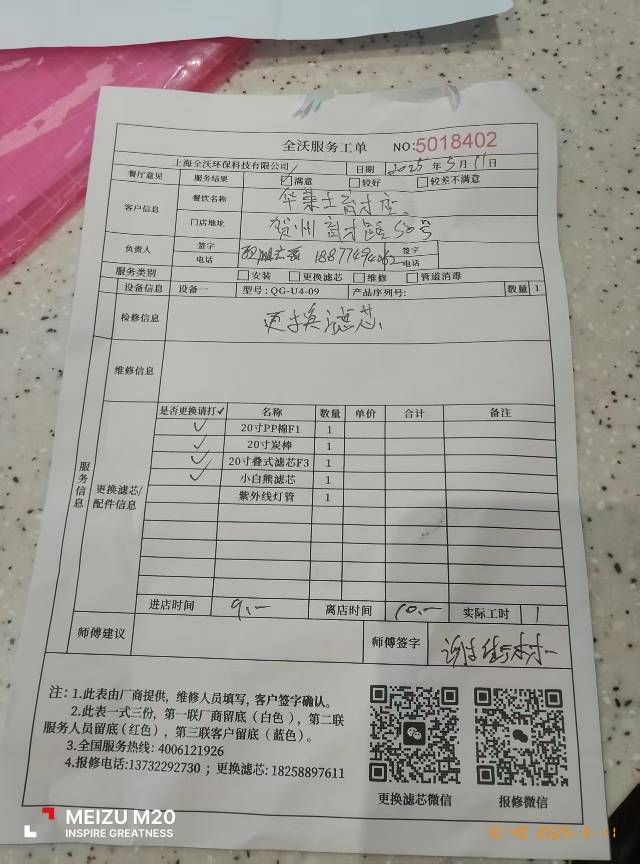 全沃服务工单 NO:5018402
上海全沃环保科技有限公司 日期 2025 年 5 月 11 日
餐厅意见 服务结果 ☑满意 □较好 □较差不满意
客户信息 餐饮名称 华莱士育才店
门店地址 贺州 育才路 50号
负责人 签字 电话 签字 电话
服务类别 □安装 □更换滤芯 □维修 □管道消毒
设备信息 设备一 型号: QG-U4-09 产品序列号: 数量 1
检修信息 更换滤芯
维修信息
服务信息
更换滤芯/配件信息
是否更换请打✓ 名称 数量 单价 合计 备注
✓ 20寸PP棉F1 1
✓ 20寸炭棒 1
✓ 20寸叠式滤芯F3 1
✓ 小白熊滤芯 1
紫外线灯管 1
进店时间 9.— 离店时间 10.— 实际工时 1
师傅建议 师傅签字
注: 1.此表由厂商提供，维修人员填写，客户签字确认。
2.此表一式三份，第一联厂商留底（白色），第二联
服务人员留底(红色)，第三联客户留底（蓝色）。
3.全国服务热线: 4006121926
4.报修电话:13732292730 ; 更换滤芯: 18258897611
更换滤芯微信 报修微信
MEIZU M20
INSPIRE GREATNESS